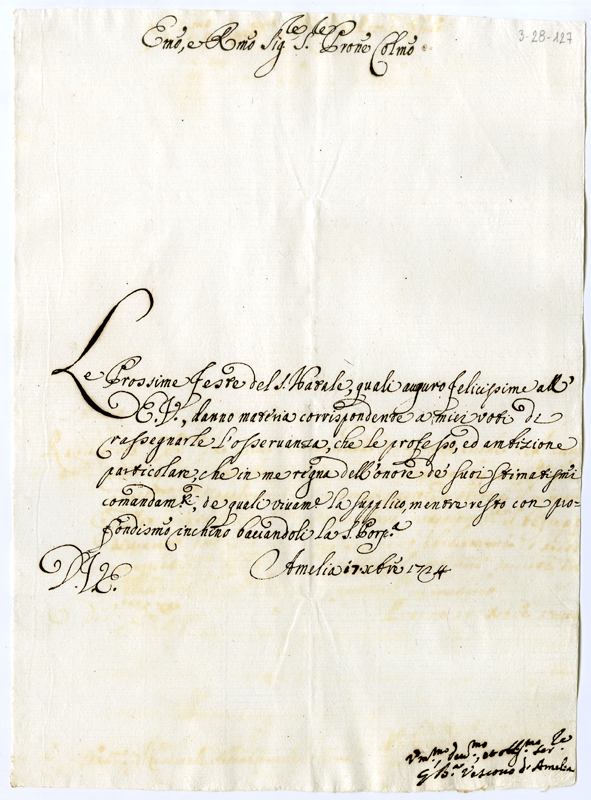 3-28-127
Emo, e Rmo Sig.re S.re Prone Colmo
Le Prossime feste del S. Natale, quali auguro felicissime all'
E. V., danno materia corrispondente a miei voti di
rassegnarle l'osservanza, che le professo, ed ambizione
particolare, che in me regna dell'onore de' suoi stimatismi
comandam.ti, de quali vivam.te la supplico, mentre resto con pro=
fondismo inchino baciandoli la S. Porp.a
Amelia 17 xbre 1724
D. V. E.
Vm.mo dev.mo, et obblig.mo Ser.re
G B.a Vescovo di Amelia